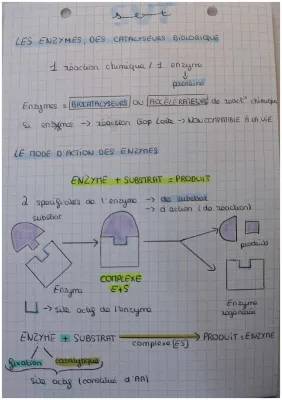 LES ENZYMES, DES CATALYSEURS BIOLOGIQUE
1 réaction chimique / 1 enzyme
↓
protéine
Enzymes = BIOCATALYSEURS OU ACCÉLÉRATEURS de react° chimique
si enzymes → réaction trop lente → NON COMPATIBLE À LA VIE
LE MODE D'ACTION DES ENZYMES
ENZYME + SUBSTRAT = PRODUIT
2 spécificités de l'enzyme → de substrat
→ d'action (de réaction)
substrat
produits
Enzyme
COMPLEXE
E+S
Enzyme
→ site actif de l'enzyme
ENZYME + SUBSTRAT → PRODUIT + ENZYME
complexe [ES]
fixation catalytique
Site actif (constitué d'AA)